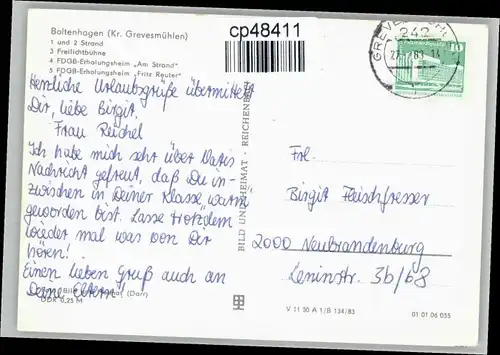 Boltenhagen (Kr. Grevesmühlen)
1 und 2 Strand
3 Freilichtbühne
4 FDGB-Erholungsheim „Am Strand"
5 FDGB-Erholungsheim „Fritz Reuter"
cp48411
242
10
Herzliche Urlaubsgrüße übermittelt
Dir, liebe Birgit,
Frau Reichel
Ich habe mich sehr über Vatis
Nachricht gefreut, daß Du in-
zwischen in Deiner Klasse „warm"
geworden bist. Lasse trotzdem
wieder mal was von Dir
hören!
Einen lieben Gruß auch an
Deine Eltern!
(Darr)
DDR 0,25 M
BILD UND HEIMAT · REICHENBACH
Frl.
Birgit Fleischfresser
2000 Neubrandenburg
Leninstr. 3b/68
V 11 50 A 1/B 134/83
01 01 06 035